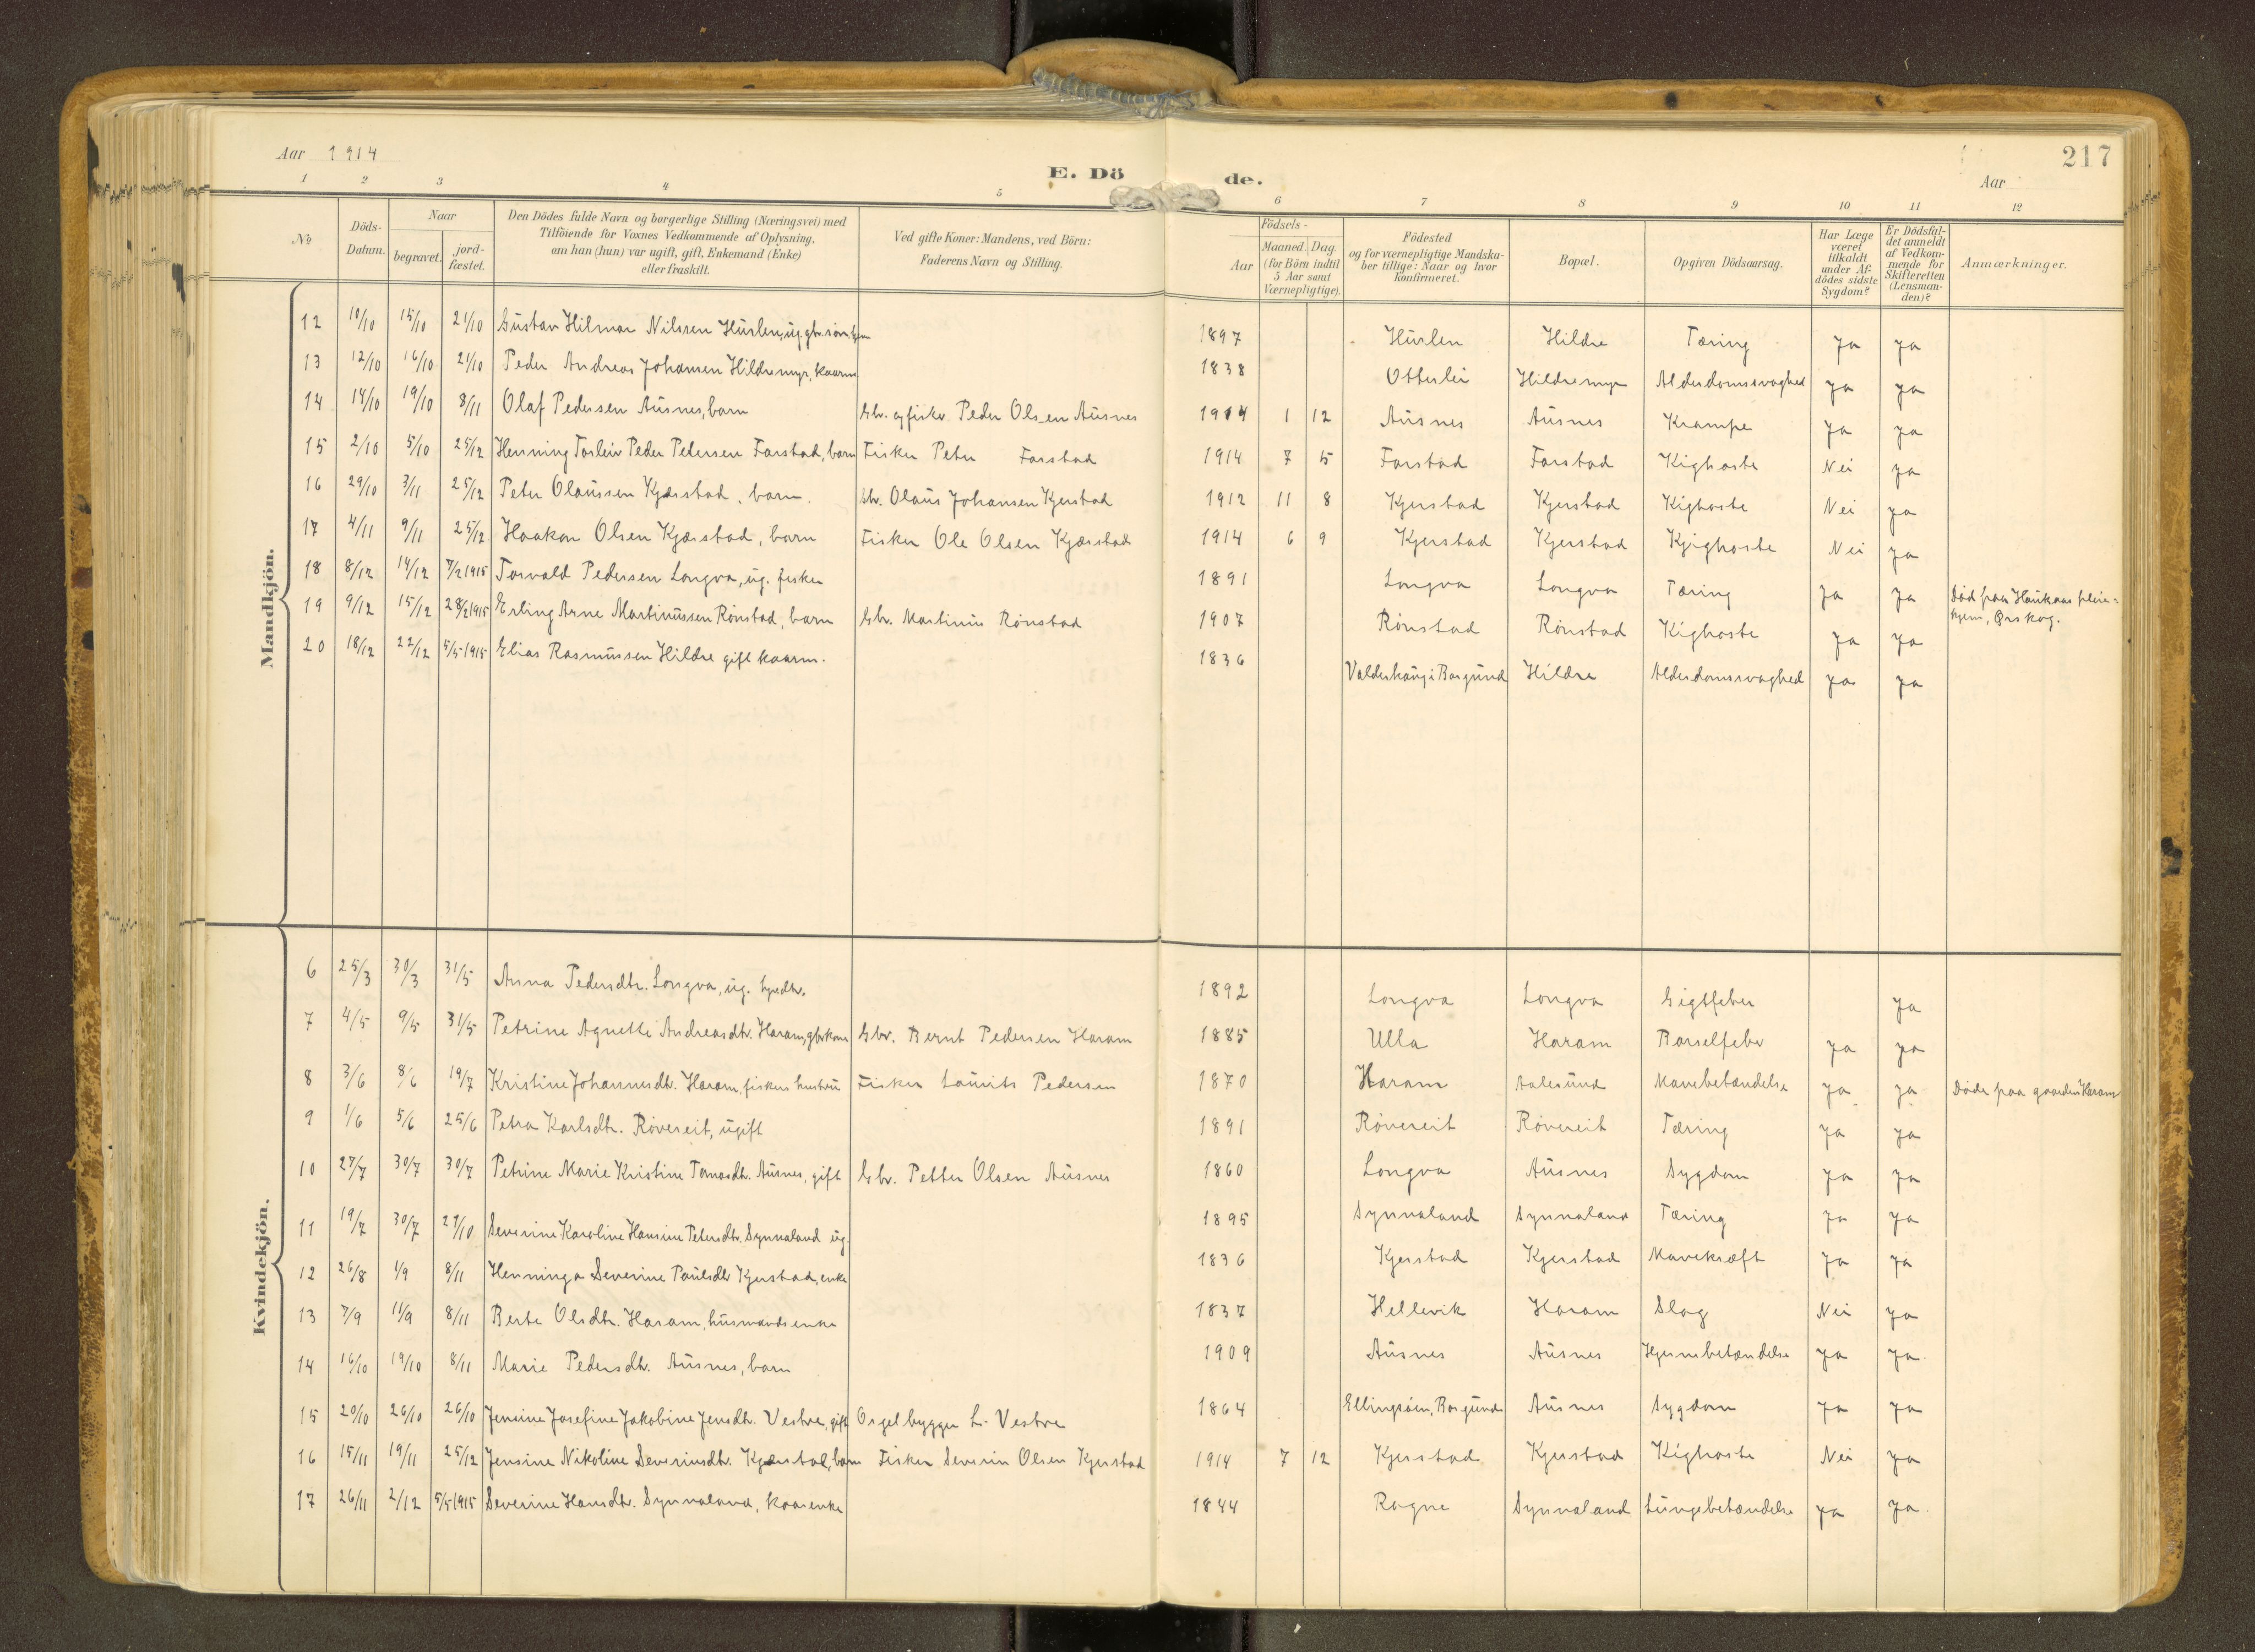 Aar 1914
E. Dö de.
217
Aar
1 2 3 4 5 6 7 8 9 10 11 12
No
Döds-Datum.
Naar
begravet.
jord-fæstet.
Den Dödes fulde Navn og borgerlige Stilling (Næringsvei) med
Tilföiende for Voxnes Vedkommende af Oplysning,
om han (hun) var ugift, gift, Enkemand (Enke)
eller fraskilt.
Ved gifte Koner: Mandens, ved Börn:
Faderens Navn og Stilling.
Födsels-
Aar
Maaned. Dag.
(for Börn indtil
5 Aar samt
Værnepligtige).
Födested
og for værnepligtige Mandska-
ber tillige: Naar og hvor
konfirmeret.
Bopæl.
Opgiven Dödsaarsag.
Har Læge
været
tilkaldt
under Af-
dödes sidste
Sygdom?
Er Dödsfal-
det anmeldt
af Vedkom-
mende for
Skifteretten
(Lensman-
den)?
Anmærkninger.
Mandkjön.
12 10/10 15/10 21/10 Gustav Hilmar Nilssen Hurlen, ug. gbr. søn 1897 Hurlen Hildre Tæring Ja Ja
13 12/10 16/10 21/10 Peder Andreas Johansen Hildremyr, kaarm. 1838 Otterlei Hildremyr Alderdomssvaghed Ja Ja
14 14/10 19/10 8/11 Olaf Pedersen Ausnes, barn Gbr. og fisker Peder Olsen Ausnes 1914 1 12 Ausnes Ausnes Krampe Ja Ja
15 2/10 5/10 25/12 Henning Torleiv Peder Pedersen Farstad, barn Fisker Peter Farstad 1914 7 15 Farstad Farstad Kighoste Nei Ja
16 29/10 3/11 25/12 Peter Olaussen Kjærstad, barn. Gbr. Olaus Johansen Kjerstad 1912 11 8 Kjerstad Kjerstad Kighoste Nei Ja
17 4/11 9/11 25/12 Haakon Olsen Kjærstad, barn Fisker Ole Olsen Kjærstad 1914 6 9 Kjerstad Kjerstad Kjighoste Nei Ja
18 8/12 14/12 7/2 1915 Torvald Pedersen Longva, ug. fisker 1891 Longva Longva Tæring Ja Ja Død paa Haukaas pleie-
hjem, Ørskog.
19 9/12 15/12 28/2 1915 Erling Arne Martinussen Rønstad, barn Gbr. Martinus Rønstad 1907 Rønstad Rønstad Kighoste Ja Ja
20 18/12 22/12 5/5 1915 Elias Rasmussen Hildre gift kaarm. 1836 Valderhaug i Borgund Hildre Alderdomssvaghed Ja Ja
Kvindekjön.
6 25/3 30/3 31/5 Anna Pedersdtr. Longva, ug. 1892 Longva Longva Gigtfeber Ja
7 4/5 9/5 31/5 Petrine Agnette Andreasdtr. Haram, gbrkone Gbr. Bernt Pedersen Haram 1885 Ulla Haram Barselfeber Ja Ja
8 3/6 8/6 19/7 Kristine Johannesdtr. Haram, fiskers hustru Fisker Laurits Pedersen 1870 Haram Aalesund Mavebetændelse Ja Ja Døde paa gaarden Haram
9 1/6 5/6 25/6 Petra Karlsdtr. Røvereit, ugift 1891 Røvereit Røvereit Tæring Ja Ja
10 27/7 30/7 30/7 Petrine Marie Kristine Tomasdtr. Ausnes, gift Gbr. Petter Olsen Ausnes 1860 Longva Ausnes Sygdom Ja Ja
11 19/7 30/7 27/10 Severine Karoline Hansine Petersdtr. Synnaland ug. 1895 Synnaland Synnaland Tæring Ja Ja
12 26/8 1/9 8/11 Henninga Severine Paulsdtr Kjerstad, enke 1836 Kjerstad Kjerstad Mavekræft Ja Ja
13 7/9 11/9 8/11 Berte Olsdtr. Haram, husmandsenke 1837 Hellevik Haram Slag Nei Ja
14 16/10 19/10 8/11 Marie Pedersdtr. Ausnes, barn 1909 Ausnes Ausnes Hjernebetændelse Ja Ja.
15 20/10 26/10 26/10 Jensine Josefine Jakobine Jensdtr. Vestre, gift Orgelbygger L. Vestre 1864 Ellingsøen, Borgund Ausnes Sygdom Ja Ja
16 15/11 19/11 25/12 Jensine Nikoline Severinsdtr. Kjærstad, barn Fisker Severin Olsen Kjerstad 1914 7 12 Kjerstad Kjerstad Kighoste Nei Ja
17 26/11 2/12 5/5 1915 Severine Hansdtr. Synnaland, kaarenke 1844 Rogne Synnaland Lungebetændelse Ja Ja.